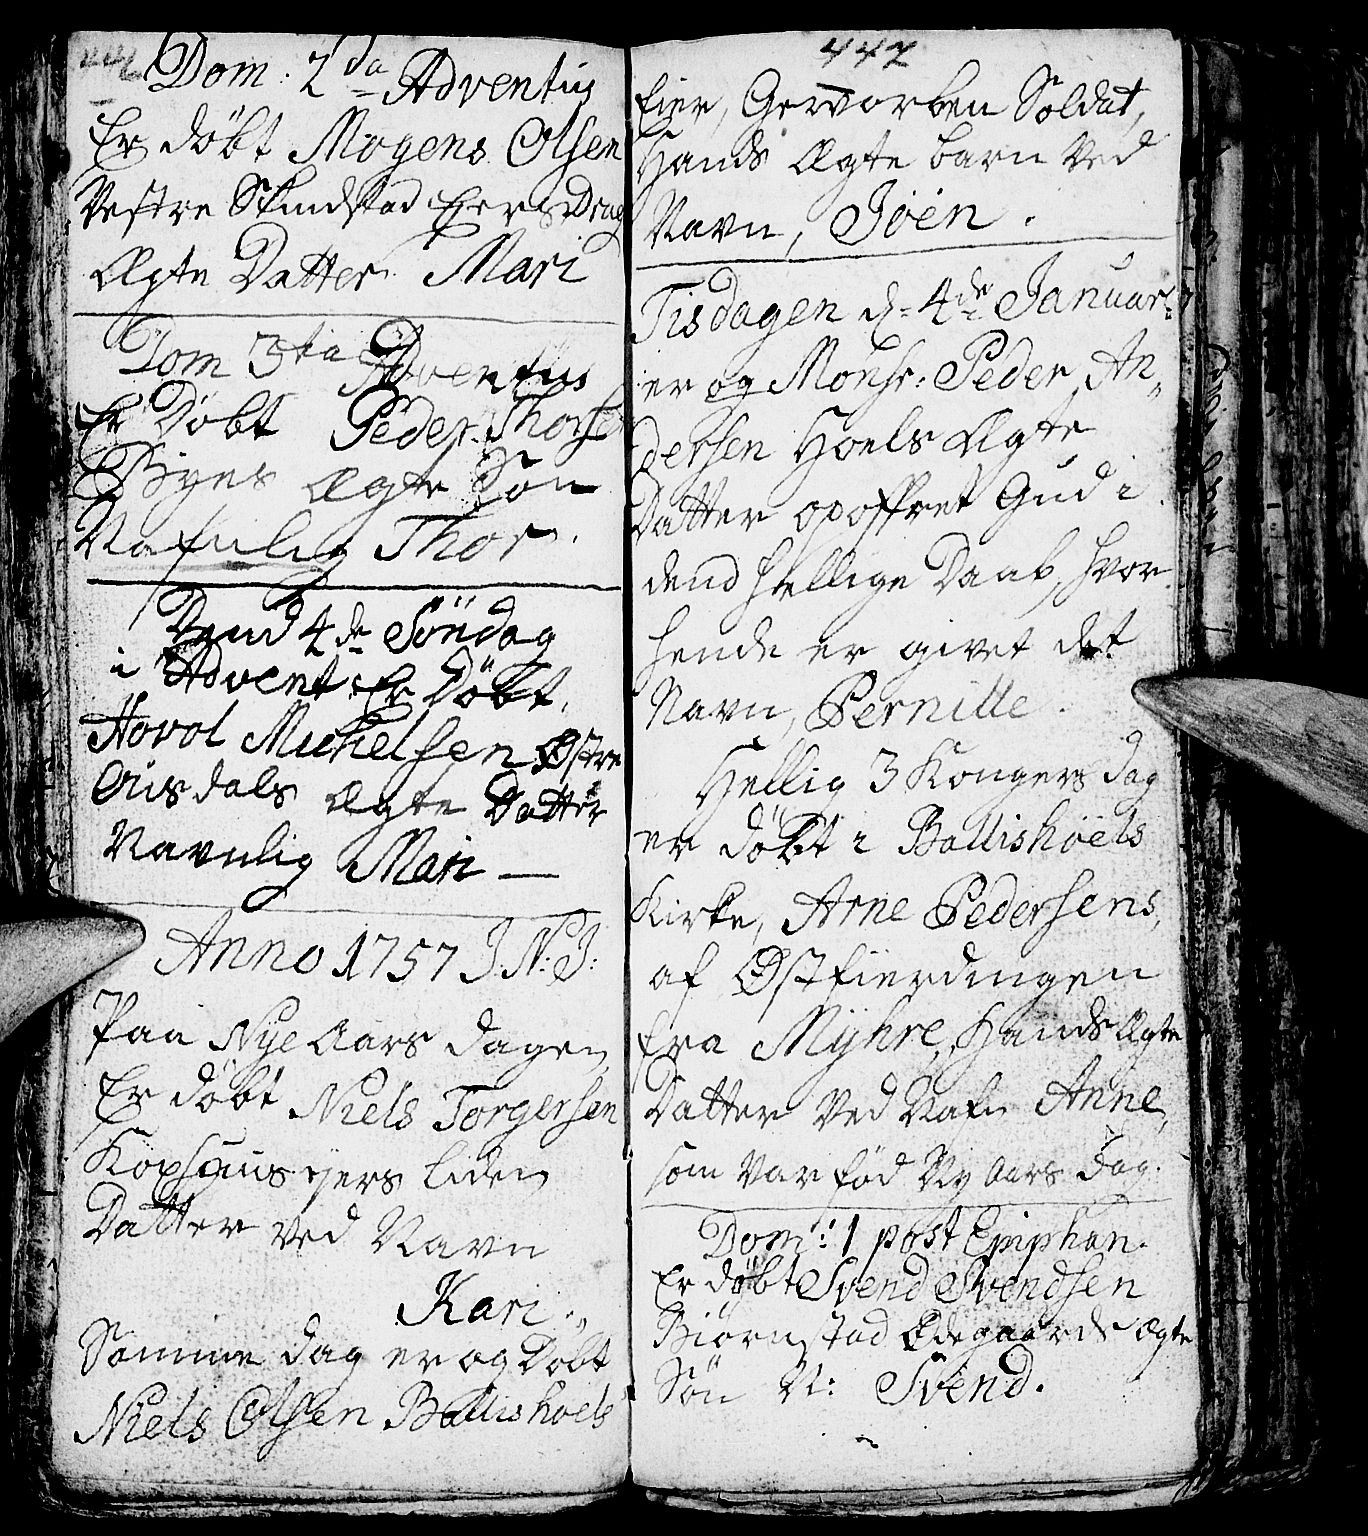 446
Dom: 2da Adventus
Er døbt Mogens Olsen
Vestre Skindstad Eiers
Ægte Datter Mari
Dom 3tia Adventus
Er Døbt Peder Thorsen
Byes Ægte Søn
Nafnlig Thor.
Dend 4de Söndag
i Advent: Er Döbt,
Hovol Michelsen Østre
Ousdals Ægte Datter
Navnlig Mari —
Anno 1757 J. N: J:
Paa Nye Aars dagen
Er døbt Niels Torgersen
ejers liden
Datter ved Navn
Kari.,
Samme dag er og Døbt
Niels Olsen Ballishoels
447
Eier, Geworben Soldat,
Hands Ægte barn ved
Navn, Joen.
Tisdagen d= 4de Januar:
er og Monsr: Peder An-
dersen Hoels Ægte
Datter opoffret Gud i
dend hellige Daab, hvor
hende er givet det
Navn, Pernille.
Hellig 3 Kongers dag
er døbt i Ballishöels
Kirke, Arne Pedersens,
af Østfierdingen
fra Mÿhre, hands Ægte
Datter ved Nafn Anne,
som var fød Ny Aars Dag.
Dom: 1 post Epiphan.
Er døbt Svend Svendsen
Biørnstad Ødegaards Ægte
Søn N: Svend.